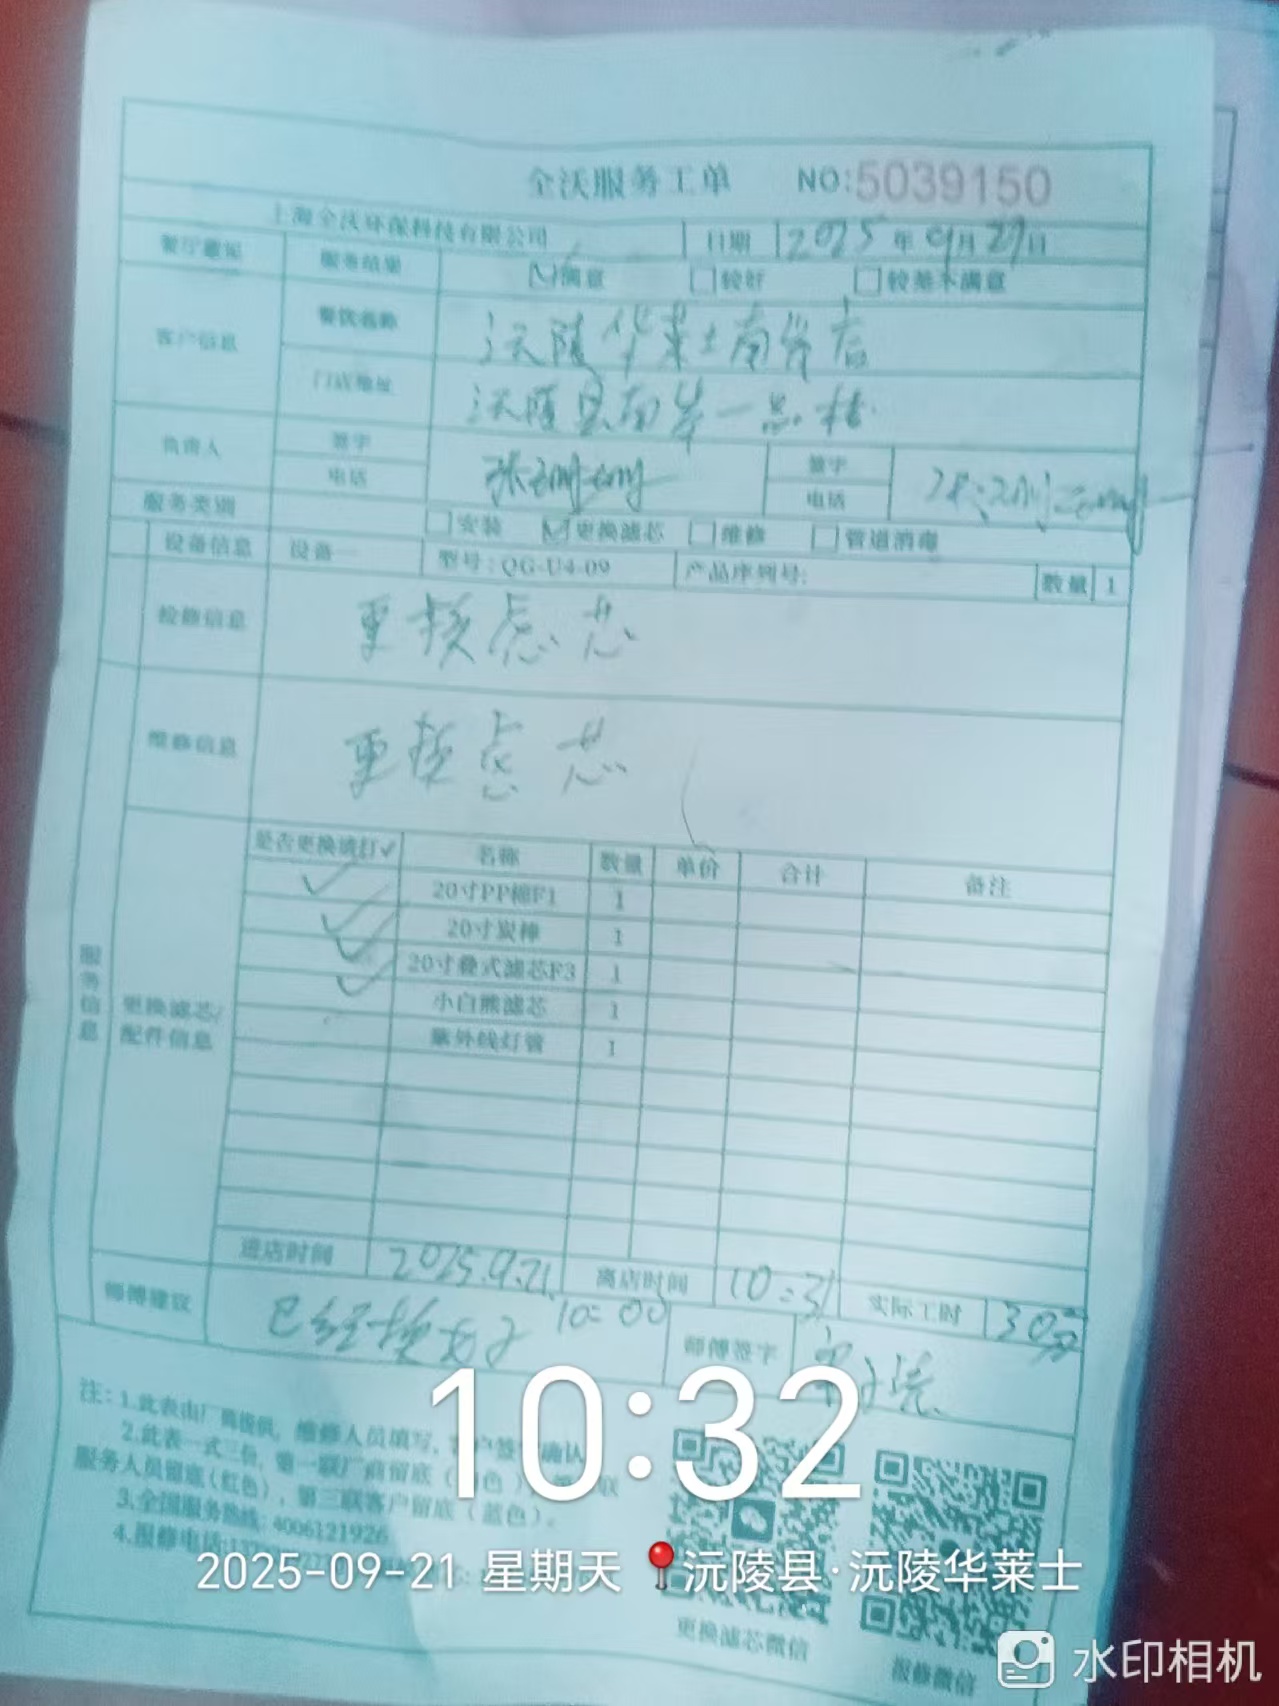 全沃服务工单 NO:5039150
上海全沃环保科技有限公司 日期 2025年09月
服务结果 满意 较好 较差不满意
客户信息 餐饮名称 沅陵华莱士南岸店
门店地址 沅陵县南岸一品
负责人 签字 签字
电话 电话
服务类别 安装 更换滤芯 维修 管道消毒
设备信息 设备 型号:QG-U4-09 产品序列号: 数量 1
检修信息 更换滤芯
维修信息 更换滤芯
是否更换请打✓ 名称 数量 单价 合计 备注
✓ 20寸PP棉F1 1
✓ 20寸炭棒 1
✓ 20寸叠式滤芯F3 1
✓ 小白熊滤芯 1
紫外线灯管 1
服务信息
更换滤芯/
配件信息
进店时间 2025.9.21 10:00 离店时间 10:31 实际工时 30分
师傅建议 已经换好了 师傅签字
注:1.此表由厂商提供,维修人员填写,客户签字确认
2.此表一式三份,第一联厂商留底
服务人员留底(红色),第三联客户留底(蓝色)。
3.全国服务热线:4006121926
4.报修电话:
更换滤芯微信
报修微信
10:32
2025-09-21 星期天 沅陵县·沅陵华莱士
水印相机